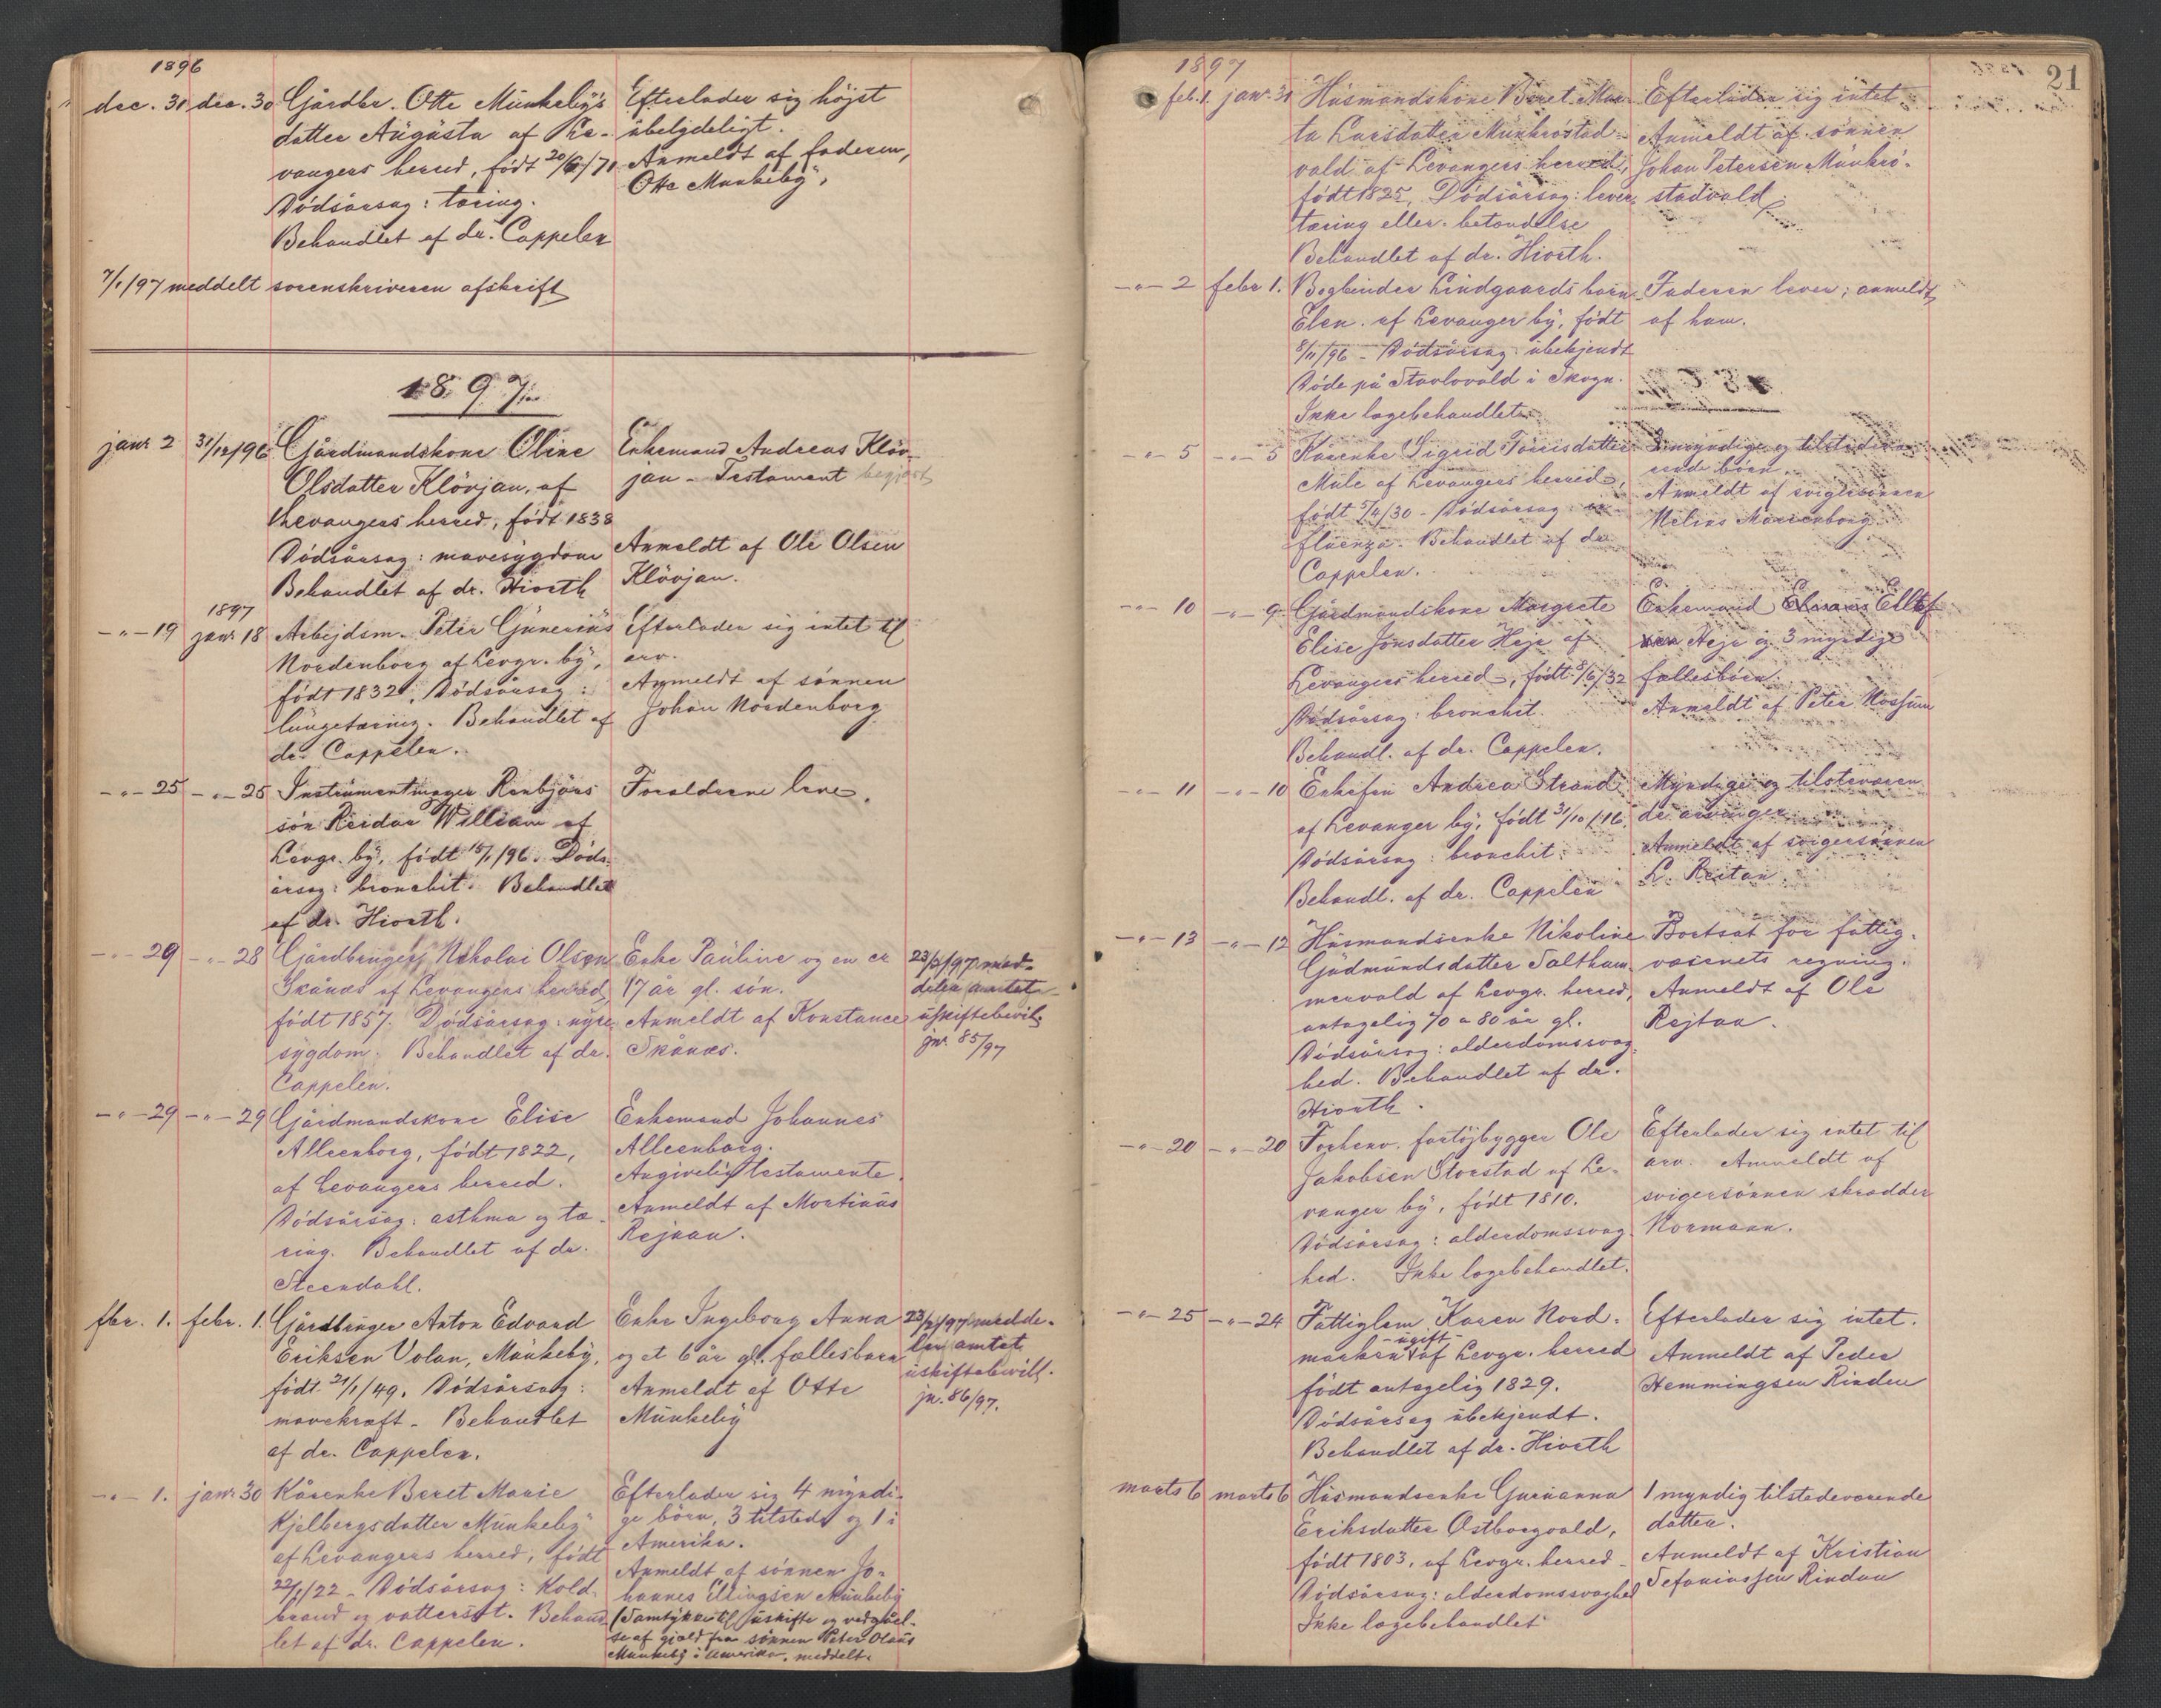 1896
dec. 31 dec. 30 Gårdbr. Otte Munkeby's
datter Augusta af Le-
vangers herred, født 20/6/71
Dødsårsag: tæring.
Behandlet af dr. Cappelen
Efterlader sig højst
ubetydeligt.
Anmeldt af faderen,
Otte Munkeby
7/1/97 meddelt sorenskriveren afskrift
1897
janr 2 31/12/96 Gårdmandskone Oline
Olsdatter Klövjan, af
Levangers herred, født 1838
Dødsårsag: mavesygdom
Behandlet af dr. Hiorth
Enkemand Andreas Klöv-
jan - Testament begjært
Anmeldt af Ole Olsen
Klövjan.
1897
-"- 19 janr 18 Arbejdsm. Peter Gunerius
Nordenborg af Levgr. by,
født 1832. Dødsårsag:
lungetæring. Behandlet af
dr. Cappelen.
Efterlader sig intet til
arv.
Anmeldt af sønnen
Johan Nordenborg
-"- 25 -"- 25 Instrumentmager Renbjörs
søn Reidar William af
Levgr. by, født 15/1/96. Døds-
årsag: bronchit. Behandlet
af dr. Hiorth.
Forældrene leve.
-"- 29 -"- 28 Gårdbruger Nikolai Olsen
Skånes af Levangers herred,
født 1857. Dødsårsag: nyre-
sygdom. Behandlet af dr.
Cappelen.
Enke Pauline og en er
17 år gl. søn.
Anmeldt af Konstance
Skånes.
23/2/97 med-
deler amtet
uskiftebevilg
jnr. 85/97
-"- 29 -"- 29 Gårdmandskone Elise
Alleenborg, født 1822,
af Levangers herred.
Dødsårsag: asthma og tæ-
ring. Behandlet af dr.
Steendahl.
Enkemand Johannes
Alleenborg.
Angivelig testamente.
Anmeldt af Martinus
Rejaan.
fbr. 1. febr. 1. Gårdbruger Anton Edvard
Eriksen Volan, Munkeby,
født 21/1/49. Dødsårsag:
mavekræft - Behandlet
af dr. Cappelen.
Enke Ingeborg Anna
og et 6 år gl. fællesbarn
Anmeldt af Otte
Munkeby
23/2/97 medde-
ler amtet
uskiftebevill.
jn. 86/97.
-"- 1. janr 30 Kårenke Beret Marie
Kjelbergsdatter Munkeby
af Levangers herred, født
22/1/22 - Dødsårsag: Kold-
brand og vattersot. Behand-
let af dr. Cappelen.
Efterlader sig 4 myndi-
ge børn, 3 tilstede og 1 i
Amerika.
Anmeldt af sønnen Jo-
hannes Ellingsen Munkeby
(Samtykke til uskifte og vedgåel-
se af gjæld fra sønnen Peter Olaus
Munkeby i Amerika, meddelt.
21
1897
feb. 1. janr. 31 Husmandskone Beret Mar-
ta Larsdatter Munkrøstad-
vald af Levangers herred,
født 1825, Dødsårsag: lever-
tæring eller betændelse
Behandlet af dr. Hiorth.
Efterlader sig intet
Anmeldt af sønnen
Johan Petersen Munkrø-
stadvald
-"- 2 febr 1. Bogbinder Lindgaards barn
Elen af Levanger by, født
8/11/96 - Dødsårsag ubekjendt
Døde på Stavlovald i Skogn.
Ikke lægebehandlet.
Faderen lever; anmeldt
af ham.
-"- 5 -"- 5 Kårenke Sigrid Torrisdatter
Mule af Levangers herred,
født 5/4/30 - Dødsårsag: in-
fluenza. Behandlet af dr
Cappelen.
myndige og tilstedevæ-
rende børn.
Anmeldt af svigersønnen
Melius Marienborg.
-"- 10 -"- 9 Gårdmandskone Margrete
Elise Jonsdatter Heje af
Levangers herred, født 8/6/32
Dødsårsag: bronchit.
Behandl. af dr. Cappelen.
Enkemand Ellef
Heje og 3 myndige
fællesbørn.
Anmeldt af Peter Nossum
-"- 11 -"- 10 Enkefru Andrea Strand
af Levanger by, født 31/10/16.
Dødsårsag: bronchit.
Behandl. af dr. Cappelen
Myndige og tilsteværen
de arvinger.
Anmeldt af svigersønnen
L. Reitan.
-"- 13 -"- 12 Husmandsenke Nikoline
Gudmundsdatter Saltham-
mervald af Levgr. herred,
antagelig 70 a 80 år gl.
Dødsårsag: alderdomssvag-
hed. Behandlet af dr.
Hiorth.
Bortsat for fattig-
væsenets regning.
Anmeldt af Ole
Rejtan.
-"- 20 -"- 20 Forhenv. fartöjbygger Ole
Jakobsen Storstad af Le-
vanger by, født 1810.
Dødsårsag: alderdomssvag-
hed. Ikke lægebehandlet.
Efterlader sig intet til
arv. Anmeldt af
svigersønnen skrædder
Normann.
-"- 25 -"- 24 Fattiglem Karen Nord-
marken - ugift - af Levgr. herred
født antagelig 1829.
Dødsårsag ubekjendt.
Behandlet af dr. Hiorth
Efterlader sig intet.
Anmeldt af Peder
Hemmingsen Rinden
marts 6 marts 6 Husmandsenke Gurianna
Eriksdatter Østborgvald,
født 1803, af Levgr. herred -
Dødsårsag: alderdomssvaghed
Ikke lægebehandlet
1 myndig tilstedeværende
datter.
Anmeldt af Kristian
Sefaniassen Rindan